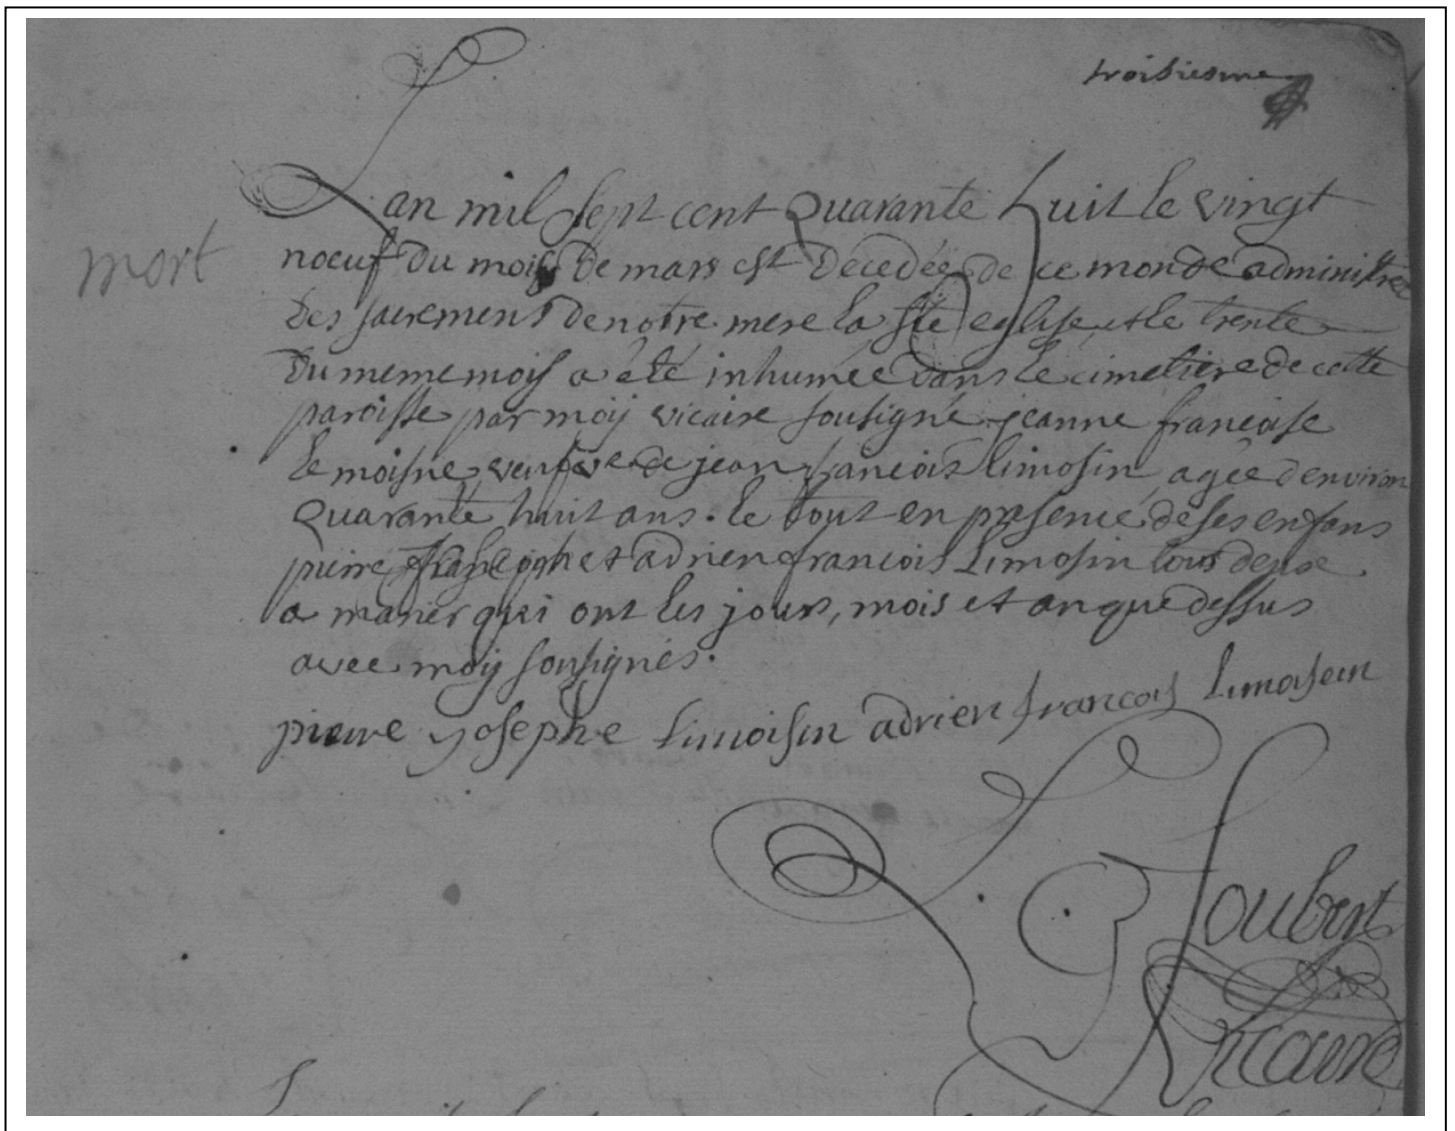 troisiesme
Lan mil sept cent quarante huit le vingt
mort
noeuf du mois de mars est decedée de ce monde administrée
des sacremens de notre mere la ste eglise et le trente
du meme mois a été inhumée dans le cimetiere de cette
paroisse par moÿ vicaire sousigné jeanne francoise
le moisne veufve de jean francois limosin agée denviron
quarante huit ans. le tout en presence de ses enfans
pierre et adrien francois Limosin tous deux
a marier qui ont les jours, mois et an que dessus
avec moÿ sousignés.
pierre yosephe Limoisin adrien francois Limoisein
Joubert
vicaire